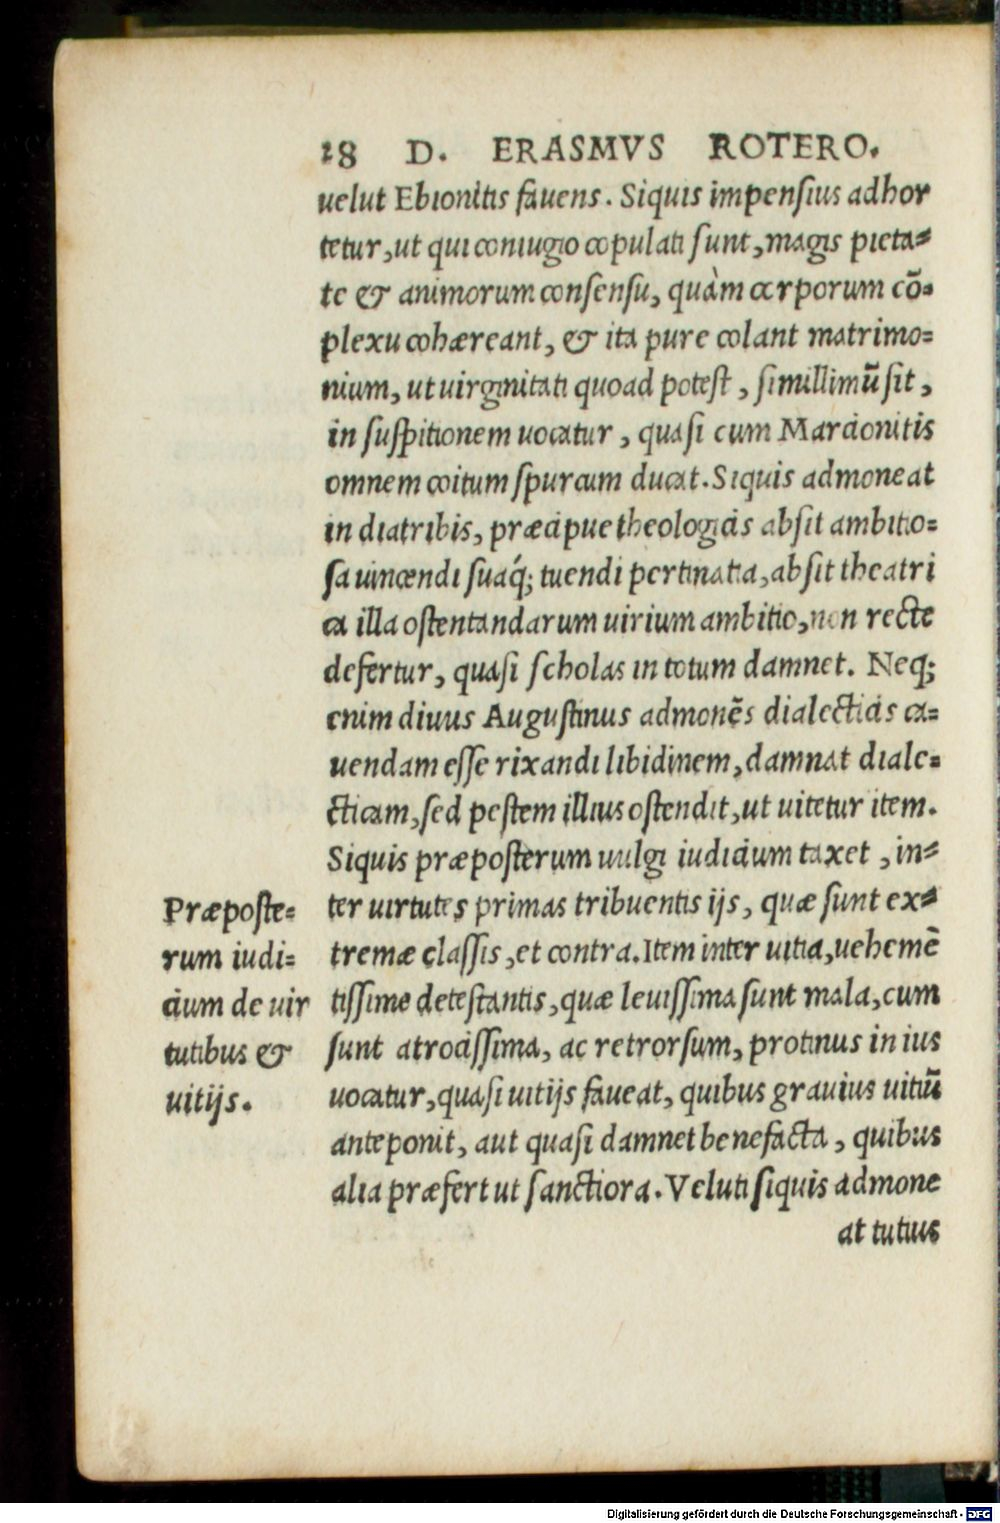 18 D. ERASMVS ROTERO.
uelut Ebionitis fauens. Siquis impensius adhor
tetur, ut qui coniugio copulati sunt, magis pieta=
te & animorum consensu, quàm corporum cō=
plexu cohæreant, & ita pure colant matrimo=
nium, ut uirginitati quoad potest, simillimũ sit,
in suspitionem uocatur, quasi cum Marcionitis
omnem coitum spurcum ducat. Siquis admoneat
in diatribis, præcipue theologicis absit ambitio=
sa uincendi suaq́; tuendi pertinatia, absit theatri
ca illa ostentandarum uirium ambitio, non recte
defertur, quasi scholas in totum damnet. Neq;
enim diuus Augustinus admonēs dialecticis ca=
uendam esse rixandi libidinem, damnat diale=
cticam, sed pestem illius ostendit, ut uitetur item.
Siquis præposterum uulgi iudicium taxet, in=
ter uirtutes primas tribuentis ijs, quæ sunt ex=
tremæ classis, et contra. Item inter uitia, uehemē
tissime detestantis, quæ leuissima sunt mala, cum
sunt atrocissima, ac retrorsum, protinus in ius
uocatur, quasi uitijs faueat, quibus grauius uitiũ
anteponit, aut quasi damnet benefacta, quibus
alia præfert ut sanctiora. Veluti siquis admone
at tutius
Præposte=
rum iudi=
cium de uir
tutibus &
uitijs.
Digitalisierung gefördert durch die Deutsche Forschungsgemeinschaft - DFG